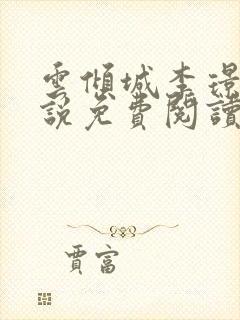 雲傾城李璟
說免費閱讀
賈富